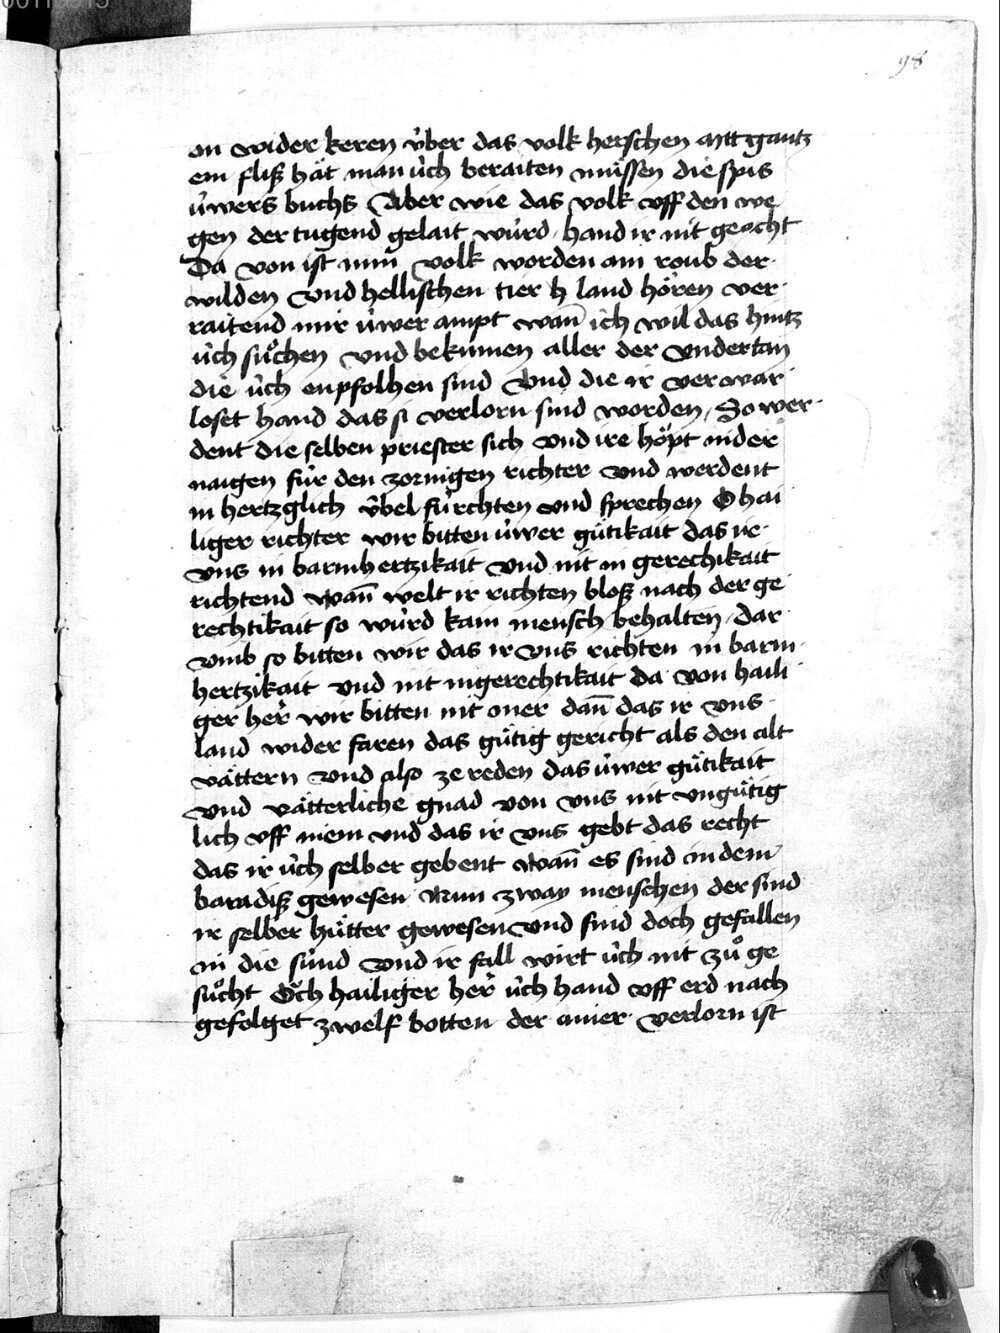 98
on wider keren v̈ber das volk herschen mit gantz
em fliß hät man u̍ch beraiten müssen die spis
u̍wers buchs Aber wie das volk vff den we
gen der tugend gelait wu̍rd hand ir nit geacht
Da von ist min volk worden ain roub der
wilden vnd hellischen tier h land hören ver
raitend mir u̍wer ampt wan̄ ich wil das hintz
u̍ch sůchen vnd bekumen aller der vndertan
die u̍ch enpfolhen sind Vnd die ir verwar
loset hand das si verlorn sind worden / So wer
dent die selben priester sich vnd ire höpt nider
naigen für den zornigen richter vnd werdent
in hertzglich v̈bel fürchten vnd sprechen O hai
liger richter wir bitten u̍wer gütikait das ir
vns in barmhertzikait vnd nit in gerechikait
richtend wan̄ welt ir richten bloß nach der ge
rechtikait so wu̍rd kain mensch behalten / dar
vmb so bitten wir das ir vns richten in barm
hertzikait vnd nit ingerechtikait da von haili
ger her̄ wir bitten nit mer dan̄ das ir vns
land wider faren das gütig gericht als den alt
vättern vnd also ze reden das u̍wer gütikait
vnd vätterliche gnad von vns nit vngütig
lich vff niem vnd das ir vns gebt das recht
das ir u̍ch selber gebent wan̄ es sind in dem
baradiß gewesen nun zway menschen der sind
ir selber hütter gewesen vnd sind doch gefallen
in die su̍nd vnd ir fall wirt u̍ch nit zů ge
sůcht Och hailiger her̄ u̍ch hand vff erd nach
gefolget zwelf botten der ainer verlorn ist